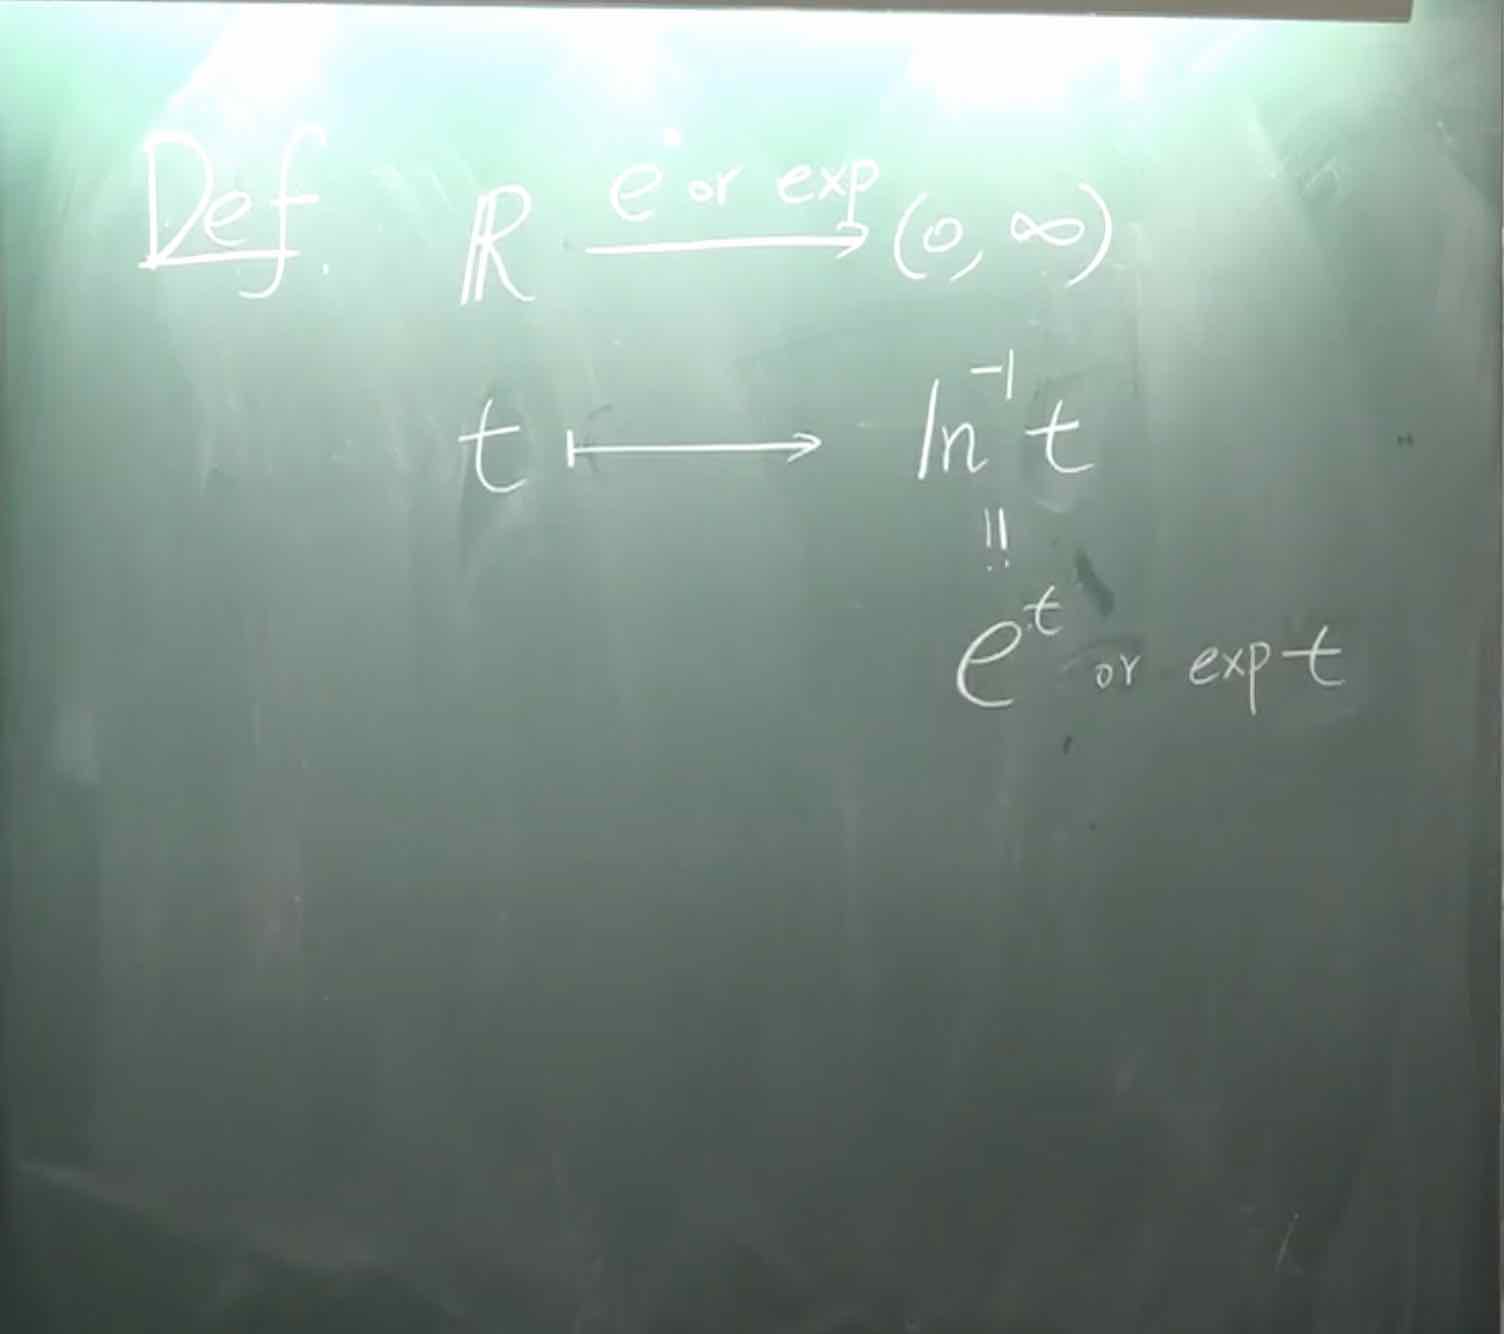 Def. ℝ e^• or exp → (0, ∞)
t ⟼ ln⁻¹ t
‖ ··
e^t or exp t